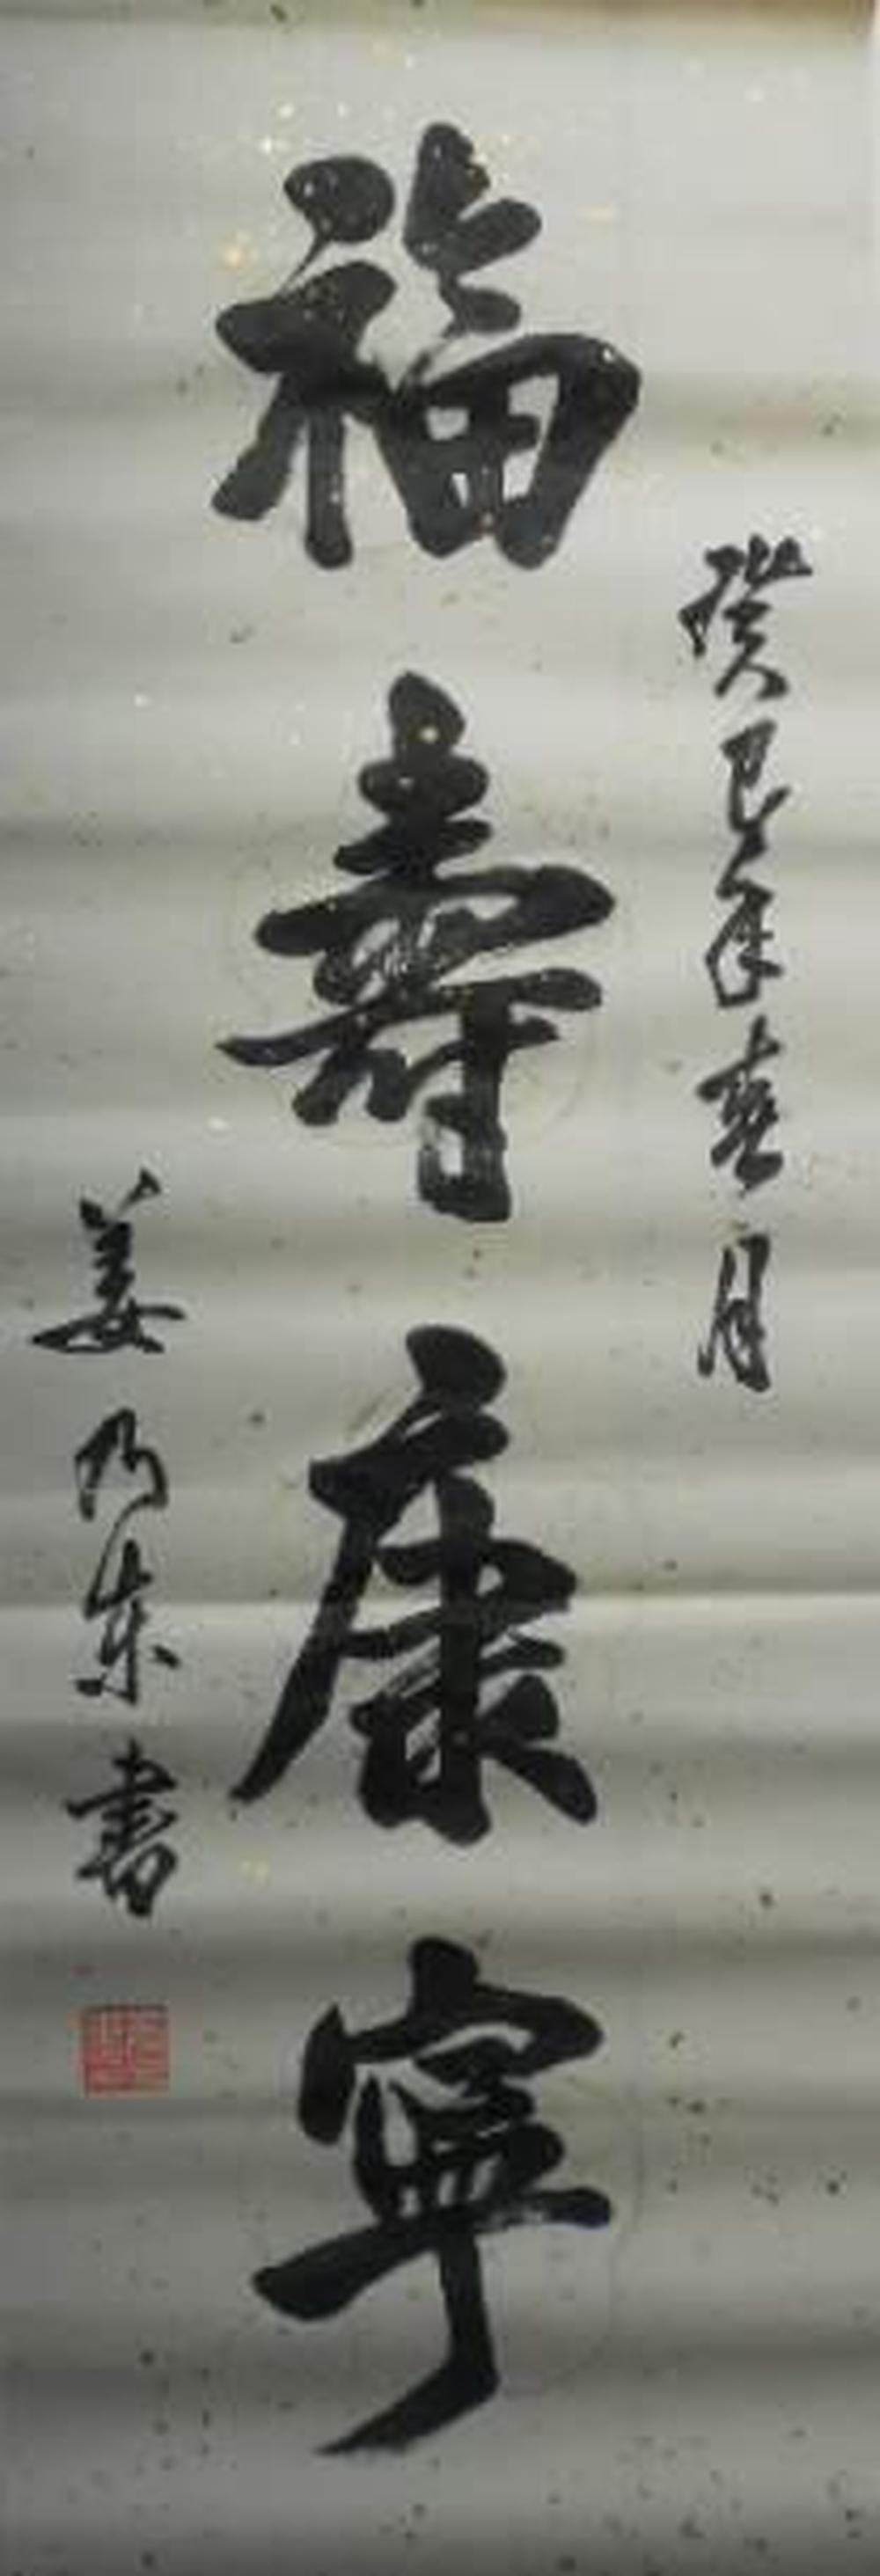 癸巳年春月
福壽康寧
姜乃东書